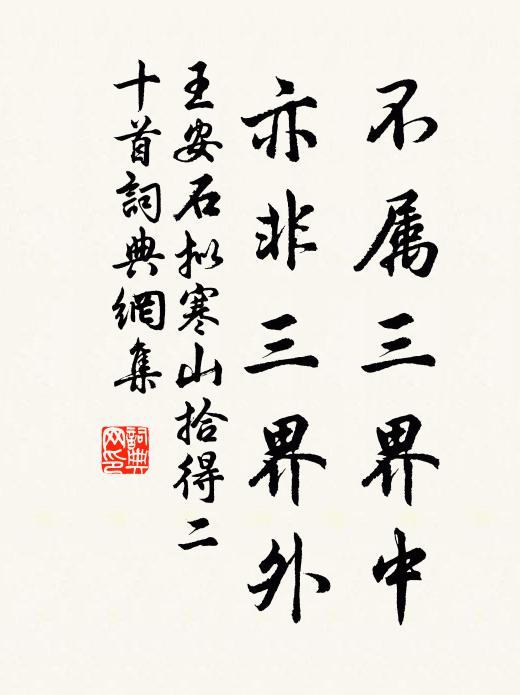 不属三界中
亦非三界外
王安石拟寒山拾得二
十首詞典網集
詞典
网印